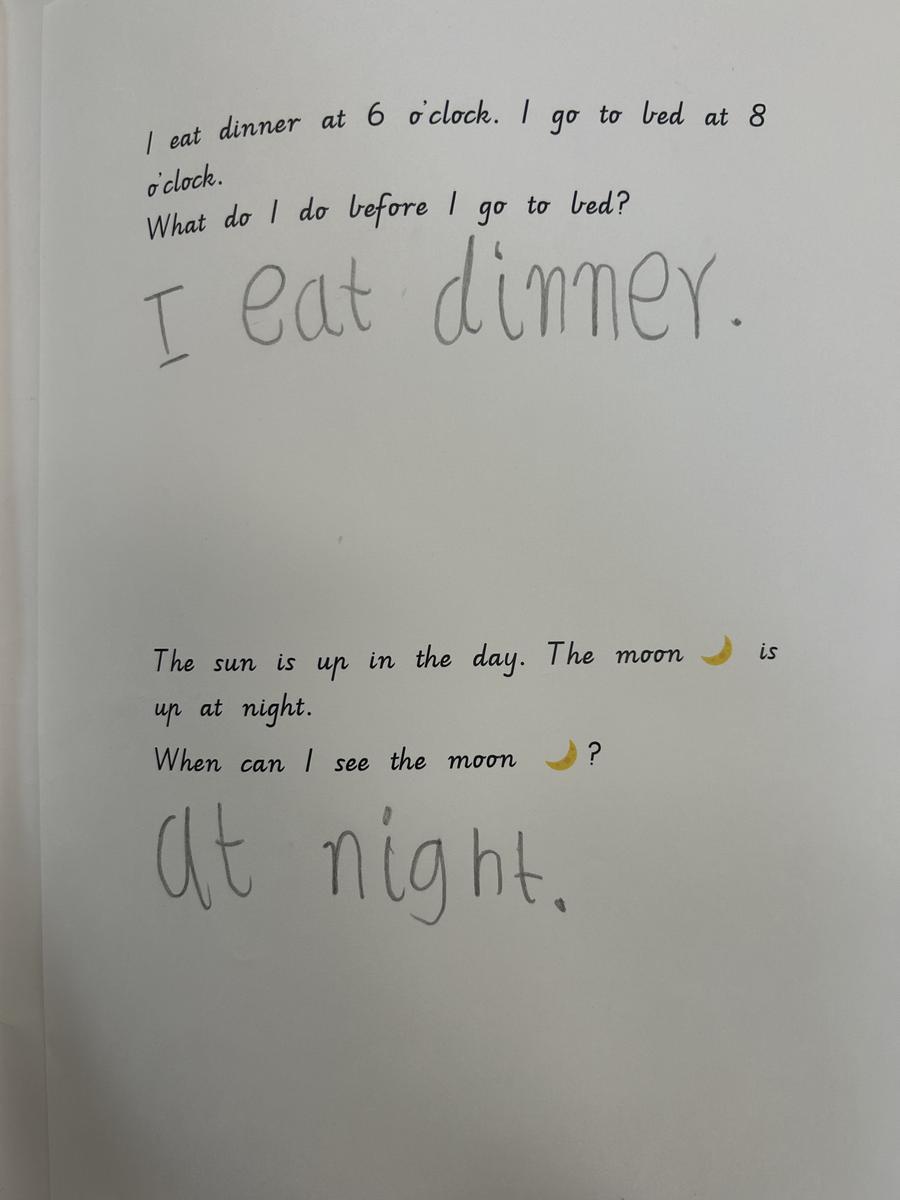 I eat dinner at 6 o'clock. I go to bed at 8
o'clock.
What do I do before I go to bed?
I eat dinner.
The sun is up in the day. The moon 🌙 is
up at night.
When can I see the moon 🌙?
at night.